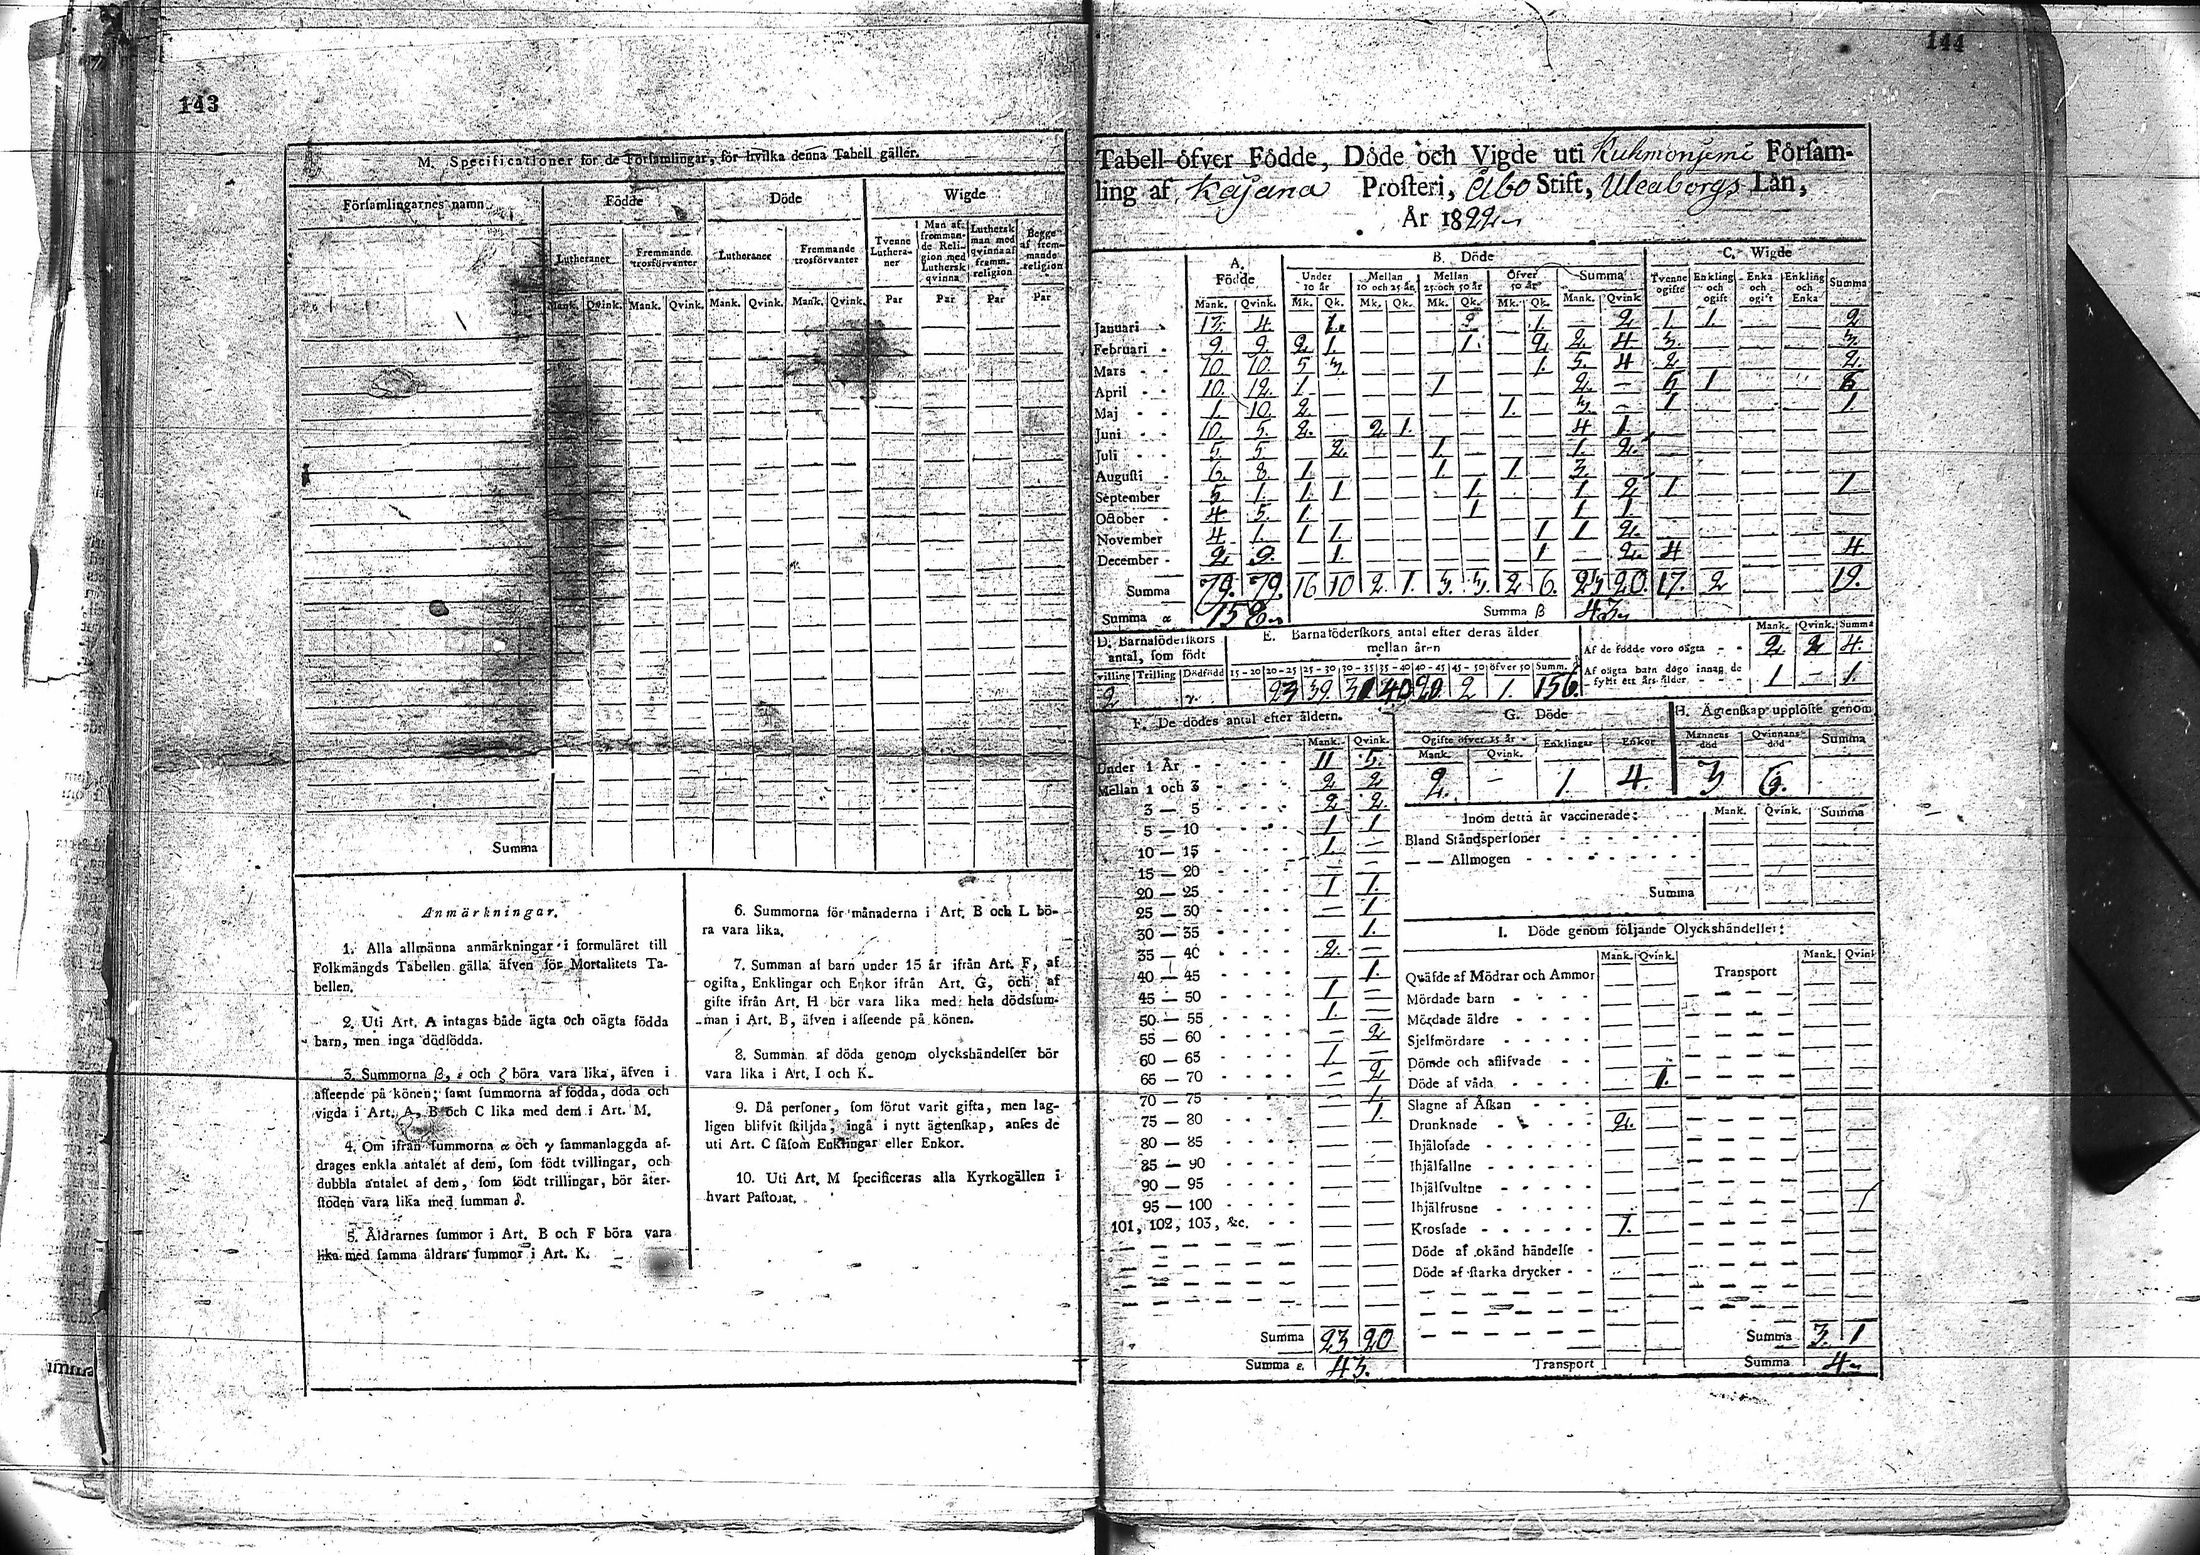 143
M. Specificationer för de Församlingar, för hvilka denna Tabell gäller.
Församlingarnes namn. Födde Döde Wigde
Lutheraner Fremmande trosförvanter Lutheraner Fremmande trosförvanter Tvenne Lutheraner Man af frommande Religion med Luthersk qvinna Luthersk man med qvinna af framm. religion Begge af fremmande religion
Mank. Qvink. Mank. Qvink. Mank. Qvink. Mank. Qvink. Par Par Par Par
Summa
Anmärkningar.
1. Alla allmänna anmärkningar i formuläret till
Folkmängds Tabellen gälla äfven för Mortalitets Ta-
bellen.
2. Uti Art. A intagas både ägta och oägta födda
barn, men inga dödfödda.
3. Summorna β, ε och ζ böra vara lika, äfven i
affeende på könen; samt summorna af födda, döda och
vigda i Art. A, B och C lika med dem i Art. M.
4. Om ifrån summorna α och γ sammanlaggda af-
drages enkla antalet af dem, som födt tvillingar, och
dubbla antalet af dem, som födt trillingar, bör åter-
stoden vara lika med summan δ.
5. Åldrarnes summor i Art. B och F böra vara
lika med samma åldrars summor i Art. K.
6. Summorna för månaderna i Art. B och L bö-
ra vara lika.
7. Summan af barn under 15 år ifrån Art. F, af
ogifta, Enklingar och Enkor ifrån Art. G, och af
gifte ifrån Art. H bör vara lika med hela dödsfum-
man i Art. B, äfven i affeende på könen.
8. Summan af döda genom olyckshändelser bör
vara lika i Art. I och K.
9. Då personer, som förut varit gifta, men lag-
ligen blifvit skiljda, ingå i nytt ägtenskap, anses de
uti Art. C såsom Enklingar eller Enkor.
10. Uti Art. M specificeras alla Kyrkogällen i
hvart Pastorat.
144
Tabell öfver Födde, Döde och Vigde uti Kuhmoniemi Församling
ling af Kajana Prosteri, Åbo Stift, Uleaborgs Län,
År 1822
A. Födde B. Döde C. Wigde
Under 10 år Mellan 10 och 25 år Mellan 25 och 50 år Öfver 50 år Summa Tvenne ogifte Enkling och ogift Enka och ogift Enkling och Enka Summa
Mank. Qvink. Mk. Qk. Mk. Qk. Mk. Qk. Mk. Qk. Mank. Qvink
Januari 13. 4. — 1. — — — — 1. — 2. 1. 1. — — 2
Februari 9. 9. 2. 1. — — — 1. — 2. 2. 4 3. — — — 3.
Mars 10. 10. 5 3. — — — — — 1. 5. 4 2 — — — 2.
April 10. 12. 1. — — — 1 — — — 2. — 5 1 — —
Maj 1. 10. 2. — — — — — 1. — 3. — 1 — — — 1.
Juni 10. 5. 2. — 2 1. — — — — 4 1. — — — — —
Juli 5. 5. — 2. — — 1. — — — 1. 2. — — — — —
Augusti 6. 8. 1. — — — 1. — 1. — 3. — — — — — —
September 5. 1. 1. 1 — — — 1. — — 1 2 1 — — — 1
October 4. 5. 1. — — — — 1 — — 1 1. — — — — —
November 4 1. 1 1. — — — — — 1 1 2. — — — — —
December 2. 9. — 1. — — — — — 1 — 2. 4 — — — 4.
Summa 79. 79. 16 10 2. 1. 3. 3. 2 6. 23 20. 17. 2 — — 19.
Summa α 158 Summa β 43
D. Barnaföderskors antal, som födt
villing Trilling Dödfödd
2 2.
E. Barnaföderskors antal efter deras ålder mellan åren
15-20 20-25 25-30 30-35 35-40 40-45 45-50 öfver 50 Summ.
23 39. 31 40 20 2 1. 156.
Mank. Qvink. Summa
Af de födde voro oägta 2 2 4.
Af oägta barn dogo innan de
fyllt ett års ålder 1 — 1.
F. De dödes antal efter åldern.
Mank. Qvink.
Under 1 År 11 5.
Mellan 1 och 3 2 2
3 — 5 2 2.
5 — 10 1 1
10 — 15 1. —
15 — 20 — —
20 — 25 1 1.
25 — 30 — 1.
30 — 35 — 1.
35 — 40 2. —
40 — 45 — 1.
45 — 50 1 —
50 — 55 1. —
55 — 60 — 2
60 — 65 1. —
65 — 70 — 2
70 — 75 — 1.
75 — 80 — 1.
80 — 85 — —
85 — 90 — —
90 — 95 — —
95 — 100 — —
101, 102, 103, &c. — —
Summa 23 20
Summa ε. 43.
G. Döde
Ogifte öfver 15 år Enklingar Enkor
Mank. Qvink.
2. — 1. 4.
H. Ägtenskap upplöste genom
Mannens död Qvinnans död Summa
3 6.
Inom detta år vaccinerade: Mank. Qvink. Summa
Bland Ståndspersoner
— — Allmogen
Summa
I. Döde genom följande Olyckshändelser:
Mank. Qvink. Mank. Qvink
Quäfde af Mödrar och Ammor Transport
Mördade barn
Mördade äldre
Sjelfmördare
Dömde och aflifvade
Döde af våda — 1.
Slagne af Åskan
Drunknade 2.
Ihjälosade
Ihjälfallne
Ihjälsvultne
Ihjälfrusne
Krossade 1.
Döde af okänd händelse
Döde af starka drycker
Summa 3. 1
Transport Summa 4